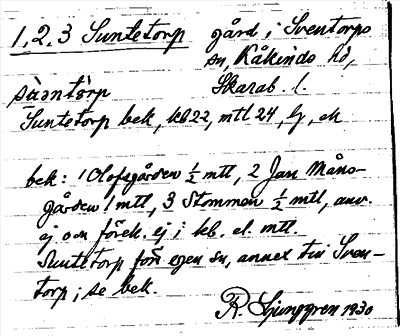 1, 2, 3 Suntetorp gård i Sventorps
sn, Kåkinds hd,
Skarab. l.
Suntetorp bek, kb 22, mtl 24, lj, ek
bek: 1 Olofsgården ½ mtl, 2 Jan Måns-
gården 1 mtl, 3 Stommen ½ mtl, anv.
ej om förek. ej i kb. el. mtl.
Suntetorp förr egen sn, annex till Sven-
torp; se bek.
R. Ljunggren 1930